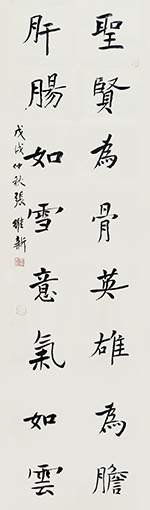 聖賢為骨英雄為膽
肝腸如雪意氣如雲
戊戌仲秋張維新